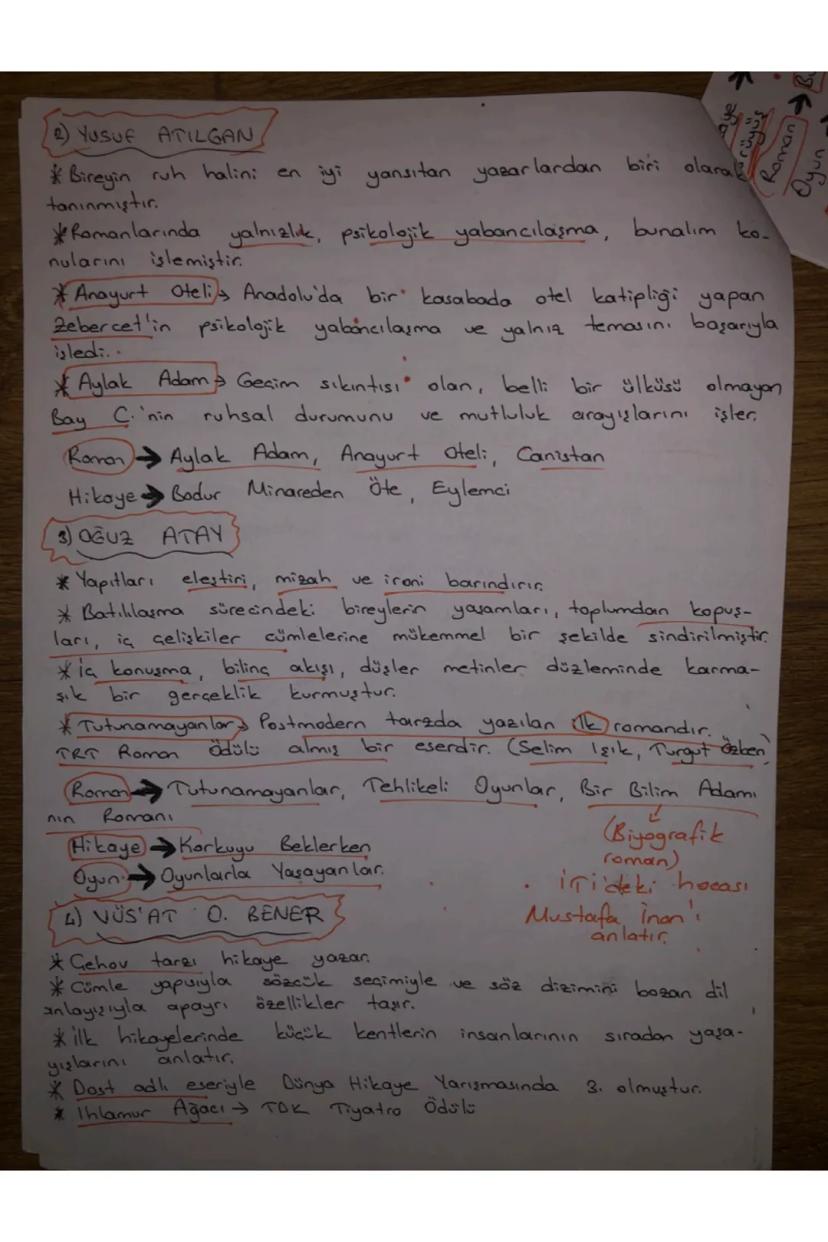 2) YUSUF ATILGAN
* Bireyin ruh halini en iyi yansıtan yazarlardan biri olarak
tanınmıştır.
* Romanlarında yalnızlık, psikolojik yabancılaşma, bunalım ko-
nularını işlemiştir.
* Anayurt Oteli → Anadolu'da bir kasabada otel katipliği yapan
Zebercet'in psikolojik yabancılaşma ve yalnız temasını başarıyla
işledi..
* Aylak Adam → Geçim sıkıntısı olan, belli bir ülküsü olmayan
Bay C.'nin ruhsal durumunu ve mutluluk arayışlarını işler.
Roman → Aylak Adam, Anayurt Oteli, Canistan
Hikaye → Bodur Minareden Öte, Eylemci
3) OĞUZ ATAY
* Yapıtları eleştiri, mizah ve ironi barındırır.
* Batılılaşma sürecindeki bireylerin yaşamları, toplumdan kopuş-
ları, iç çelişkiler cümlelerine mükemmel bir şekilde sindirilmiştir.
* İç konuşma, bilinç akışı, düşler metinler düzleminde karma-
şık bir gerçeklik kurmuştur.
* Tutunamayanlar → Postmodern tarzda yazılan ilk romandır.
TRT Roman Ödülü almış bir eserdir. (Selim Işık, Turgut Özben)
Roman → Tutunamayanlar, Tehlikeli Oyunlar, Bir Bilim Adamı
nın Romanı
(Biyografik
roman)
Hikaye → Korkuyu Beklerken
Oyun → Oyunlarla Yaşayanlar.
İTÜ'deki hocası
Mustafa İnan'ı
anlatır.
4) VÜS'AT O. BENER
* Çehov tarzı hikaye yazar.
* Cümle yapısıyla sözcük seçimiyle ve söz dizimini bozan dil
anlayışıyla apayrı özellikler taşır.
* İlk hikayelerinde küçük kentlerin insanlarının sıradan yaşa-
yışlarını anlatır.
* Dost adlı eseriyle Dünya Hikaye Yarışmasında 3. olmuştur.
* Ihlamur Ağacı → TDK Tiyatro Ödülü
Roman
Oyun